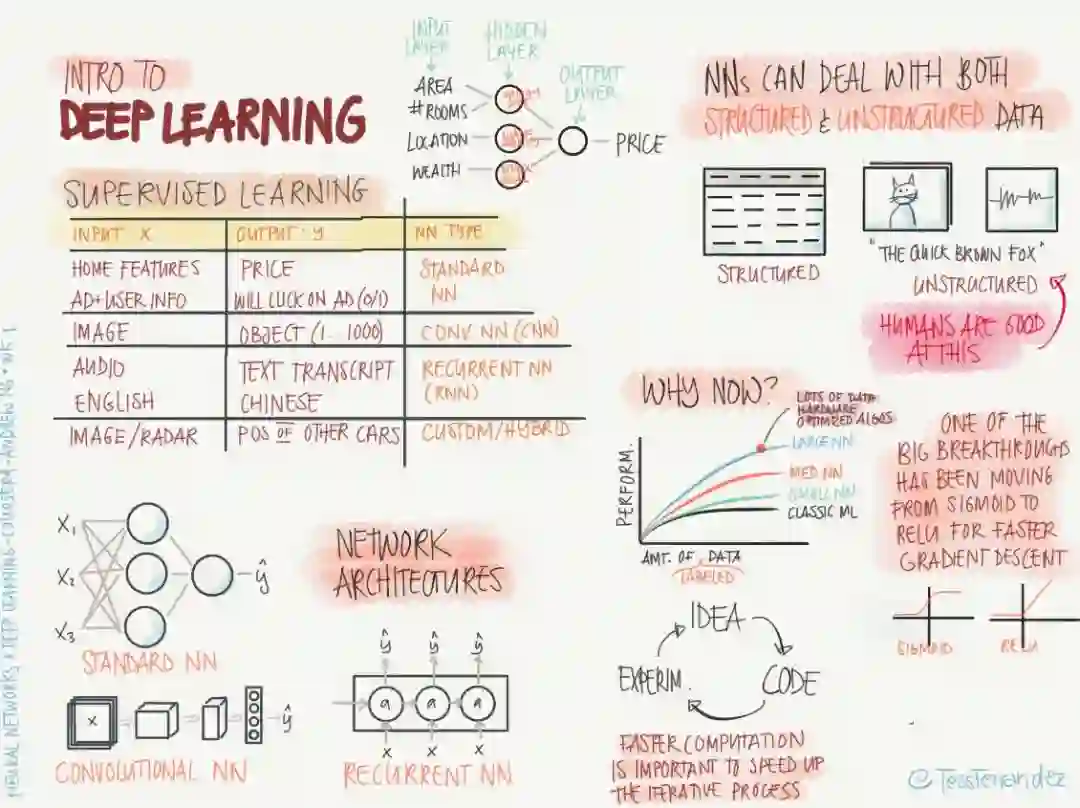 INTRO TO
DEEP LEARNING
INPUT LAYER
HIDDEN LAYER
OUTPUT LAYER
AREA
#ROOMS
LOCATION
WEALTH
PRICE
SUPERVISED LEARNING
INPUT: X OUTPUT: y NN TYPE
HOME FEATURES PRICE STANDARD
AD+USER INFO WILL CLICK ON AD (0/1) NN
IMAGE OBJECT (1... 1000) CONV NN (CNN)
AUDIO TEXT TRANSCRIPT RECURRENT NN
ENGLISH CHINESE (RNN)
IMAGE/RADAR POS OF OTHER CARS CUSTOM/HYBRID
NNs CAN DEAL WITH BOTH
STRUCTURED & UNSTRUCTURED DATA
STRUCTURED
"THE QUICK BROWN FOX"
UNSTRUCTURED
HUMANS ARE GOOD
AT THIS
WHY NOW?
LOTS OF DATA
HARDWARE
OPTIMIZED ALGOS
LARGE NN
MED NN
SMALL NN
CLASSIC ML
PERFORM.
AMT. OF DATA
LABELED
ONE OF THE
BIG BREAKTHROUGHS
HAS BEEN MOVING
FROM SIGMOID TO
RELU FOR FASTER
GRADIENT DESCENT
SIGMOID
RELU
X₁
X₂
X₃
ŷ
STANDARD NN
NETWORK
ARCHITECTURES
X
ŷ
CONVOLUTIONAL NN
ŷ ŷ ŷ
a a a
X X X
RECURRENT NN
IDEA
EXPERIM.
CODE
FASTER COMPUTATION
IS IMPORTANT TO SPEED UP
THE ITERATIVE PROCESS
NEURAL NETWORKS & DEEP LEARNING - COURSERA - ANDREW NG • WK 1
© TessFerrandez